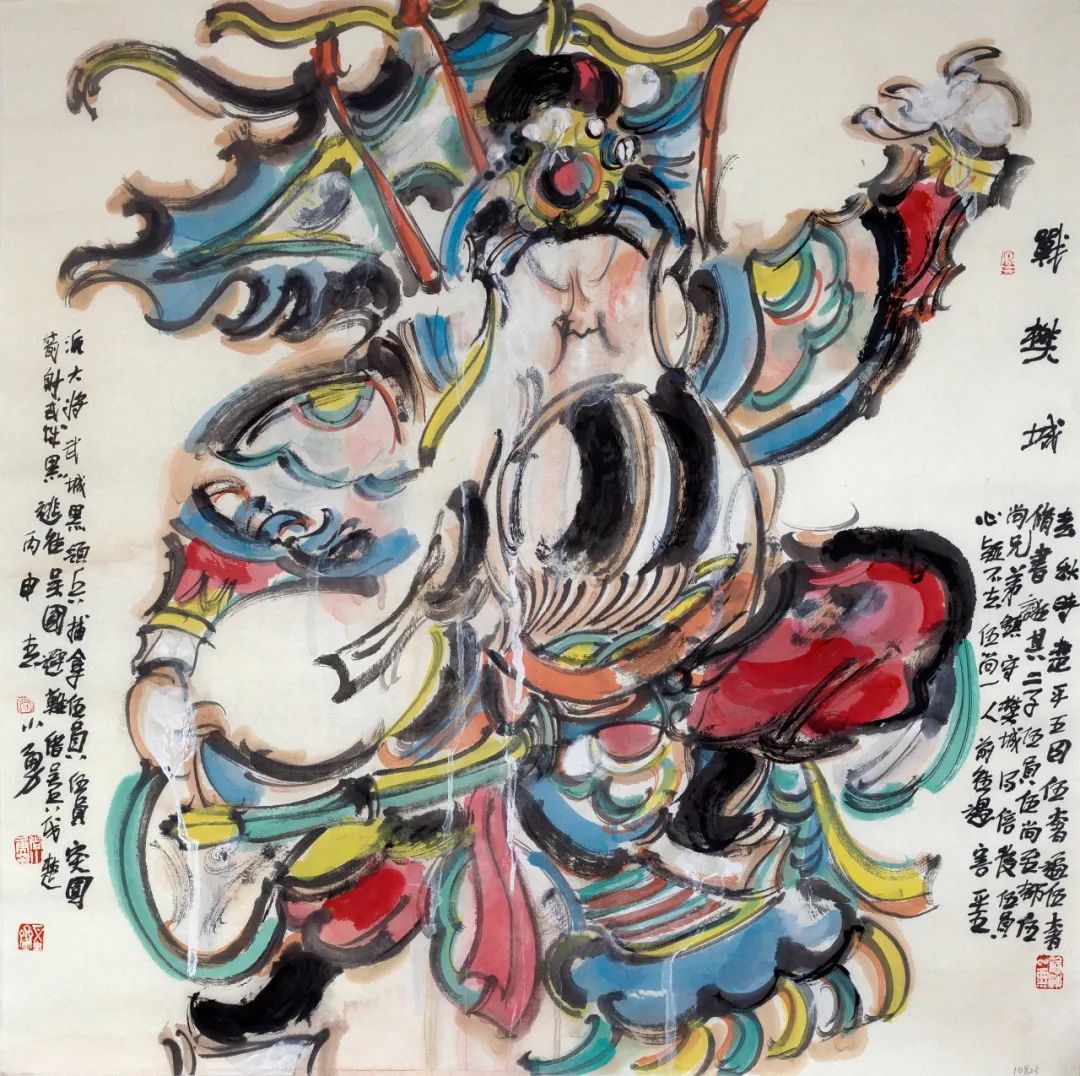 戰樊城
春秋時楚平王囚伍奢逼伍奢
脩書誆其二子伍員伍尚至郢伍
尚兄弟鎮守樊城得信後伍員
心疑不去伍尚一人前往遇害平王
派大将武城黑領兵捕拿伍員伍員突圍
箭射武城黑逃往吳國避難借吳兵伐楚
丙申春小勇
10823